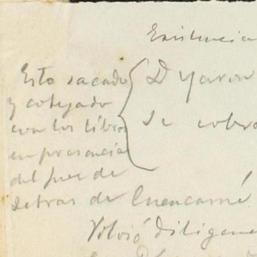 Existencia
Esto sacado
y cotejado
con los libros
en presencia
del juez de
Letras de Cuencamé
D Yarou
se cobra
Volvió diligenc